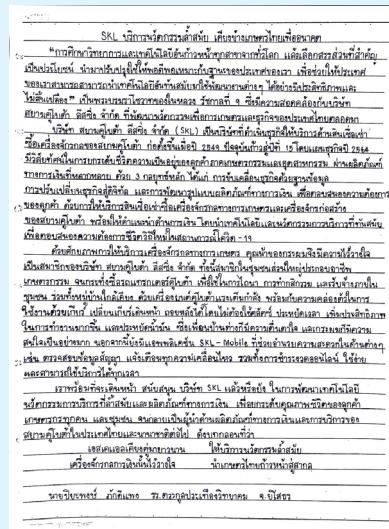 SKL บริการนวัตกรรมล้ำสมัย เคียงข้างเกษตรไทยเพื่ออนาคต
"การศึกษาวิทยาการและเทคโนโลยีอันก้าวหน้าทุกสาขาจากทั่วโลก และเลือกสรรส่วนที่สำคัญ
เป็นประโยชน์ นำมาปรับปรุงใช้ให้พอดีพอเหมาะกับฐานะของประเทศของเรา เพื่อช่วยให้ประเทศ
ของเราสามารถสามารถนำเทคโนโลยีอันทันสมัยมาใช้พัฒนางานต่างๆ ได้อย่างมีประสิทธิภาพและ
ไม่สิ้นเปลือง" เป็นพระบรมราโชวาทของในหลวง รัชกาลที่ 9 ซึ่งมีความสอดคล้องกับบริษัท
สยามคูโบต้า ลีสซิ่ง จำกัด ที่พัฒนานวัตกรรมเพื่อการเกษตรและธุรกิจของประเทศไทยตลอดมา
บริษัท สยามคูโบต้า ลีสซิ่ง จำกัด (SKL) เป็นบริษัทที่ดำเนินธุรกิจให้บริการด้านสินเชื่อเช่า
ซื้อเครื่องจักรกลของสยามคูโบต้า ก่อตั้งขึ้นเมื่อปี 2549 ปัจจุบันก้าวสู่ปีที่ 15 โดยแผนธุรกิจปี 2564
มีวิสัยทัศน์ในการยกระดับชีวิตความเป็นอยู่ของลูกค้าภาคเกษตรกรรมและอุตสาหกรรม ผ่านผลิตภัณฑ์
ทางการเงินที่หลากหลาย ด้วย 3 กลยุทธ์หลัก ได้แก่ การขับเคลื่อนธุรกิจด้วยฐานข้อมูล
การปรับเปลี่ยนธุรกิจสู่ดิจิทัล และการพัฒนารูปแบบผลิตภัณฑ์ทางการเงิน เพื่อตอบสนองความต้องการ
ของลูกค้า ด้วยการให้บริการสินเชื่อเช่าซื้อเครื่องจักรกลทางการเกษตรและเครื่องจักรก่อสร้าง
ของสยามคูโบต้า พร้อมให้คำแนะนำด้านการเงิน โดยนำเทคโนโลยีและนวัตกรรมการบริการที่ทันสมัย
เพื่อตอบสนองความต้องการชีวิตวิถีใหม่ในสถานการณ์โควิด - 19
ด้วยศักยภาพการให้บริการเครื่องจักรกลทางการเกษตร คุณพ่อของกระผมจึงมีความไว้วางใจ
เป็นสมาชิกของบริษัท สยามคูโบต้า ลีสซิ่ง จำกัด ทั้งนี้สมาชิกในชุมชนส่วนใหญ่ประกอบอาชีพ
เกษตรกรรม จนกระทั่งซื้อรถแทรกเตอร์คูโบต้า เพื่อใช้ในการไถนา การทำกสิกรรม และรับจ้างภายใน
ชุมชน รวมทั้งหมู่บ้านใกล้เคียง ด้วยเครื่องยนต์คูโบต้าแรงเต็มกำลัง พร้อมกับความคล่องตัวในการ
ใช้งานด้วยเกียร์ เปลี่ยนเกียร์เดินหน้า ถอยหลังได้โดยไม่ต้องใช้คลัตช์ ประหยัดเวลา เพิ่มประสิทธิภาพ
ในการทำงานมากขึ้น และประหยัดน้ำมัน ซึ่งเพื่อนบ้านต่างก็มีความตื่นตาใจ และกระผมก็มีความ
สนใจเป็นอย่างมาก นอกจากนี้ยังมีแอพพลิเคชั่น SKL - Mobile ที่ช่วยอำนวยความสะดวกในด้านต่างๆ
เช่น ตรวจสอบข้อมูลสัญญา แจ้งเตือนทุกความเคลื่อนไหว รวมทั้งการชำระงวดออนไลน์ ใช้ง่าย
และสามารถใช้บริการได้ทุกเวลา
เราพร้อมที่จะเดินหน้า สนับสนุน บริษัท SKL แล้วหรือยัง ในการพัฒนาเทคโนโลยี
นวัตกรรมการบริการที่ล้ำสมัยและผลิตภัณฑ์ทางการเงิน เพื่อยกระดับคุณภาพชีวิตของลูกค้า
เกษตรกรทุกคน และชุมชน จนกลายเป็นผู้นำด้านผลิตภัณฑ์ทางการเงินและการบริการของ
สยามคูโบต้าในประเทศไทยและนานาชาติต่อไป ดังบทกลอนที่ว่า
เอสเคแอลเคียงคู่มายาวนาน ให้บริการนวัตกรรมล้ำสมัย
เครื่องจักรกลการเงินนั้นไว้วางใจ นำเกษตรไทยก้าวหน้าสู่สากล
นายปิยะพงษ์ ภักดีแพง รร.ตระกูลประเทืองวิทยาคม จ.ยโสธร